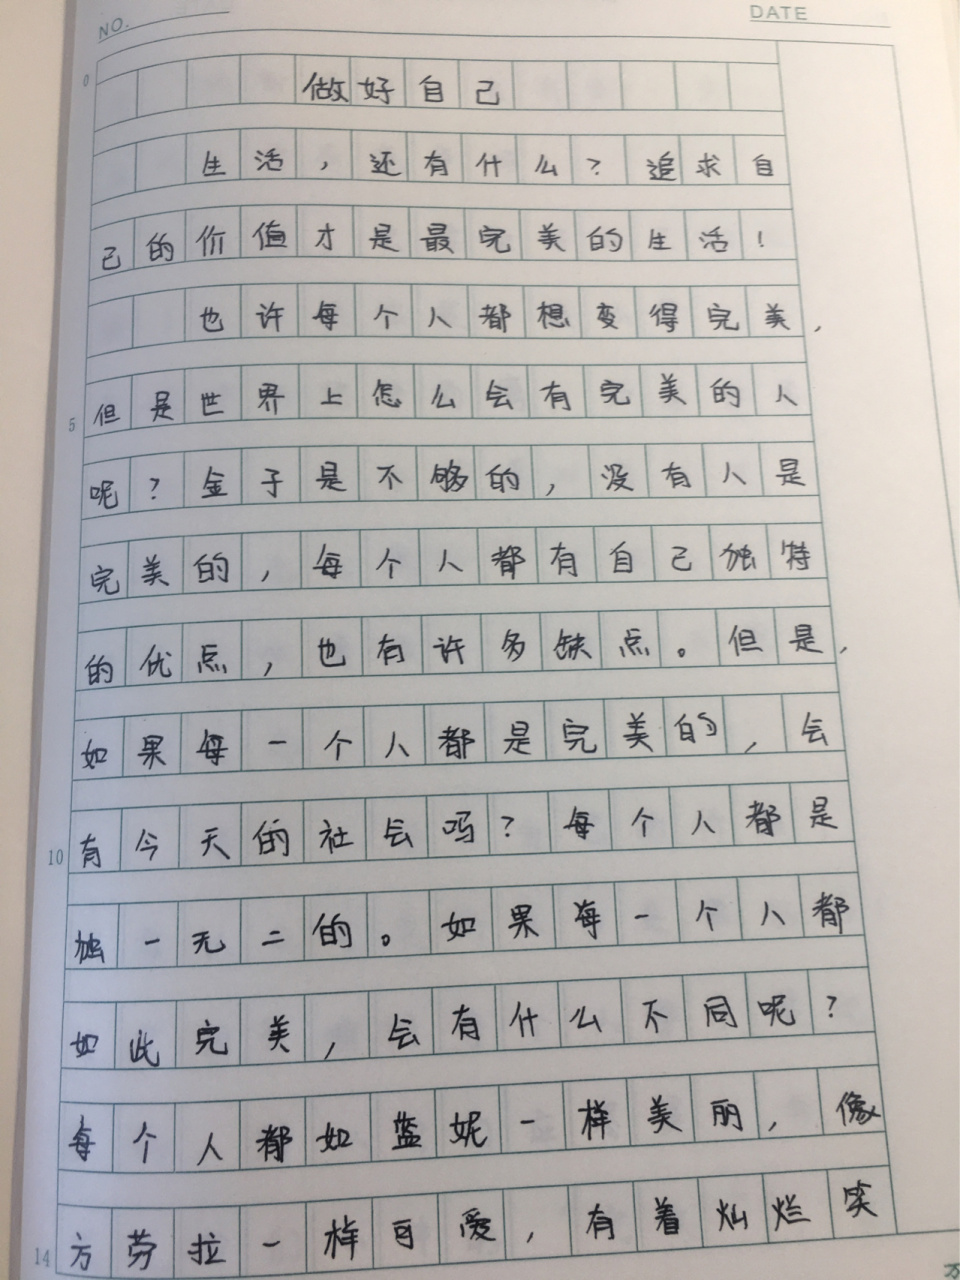 NO.
DATE
0
做好自己
生活，还有什么？追求自
己的价值才是最完美的生活！
也许每个人都想变得完美，
但是世界上怎么会有完美的人
5
呢？金子是不够的，没有人是
完美的，每个人都有自己独特
的优点，也有许多缺点。但是，
如果每一个人都是完美的，会
10
有今天的社会吗？每个人都是
独一无二的。如果每一个人都
如此完美，会有什么不同呢？
每个人都如蓝妮一样美丽，像
14
方劳拉一样可爱，有着灿烂笑